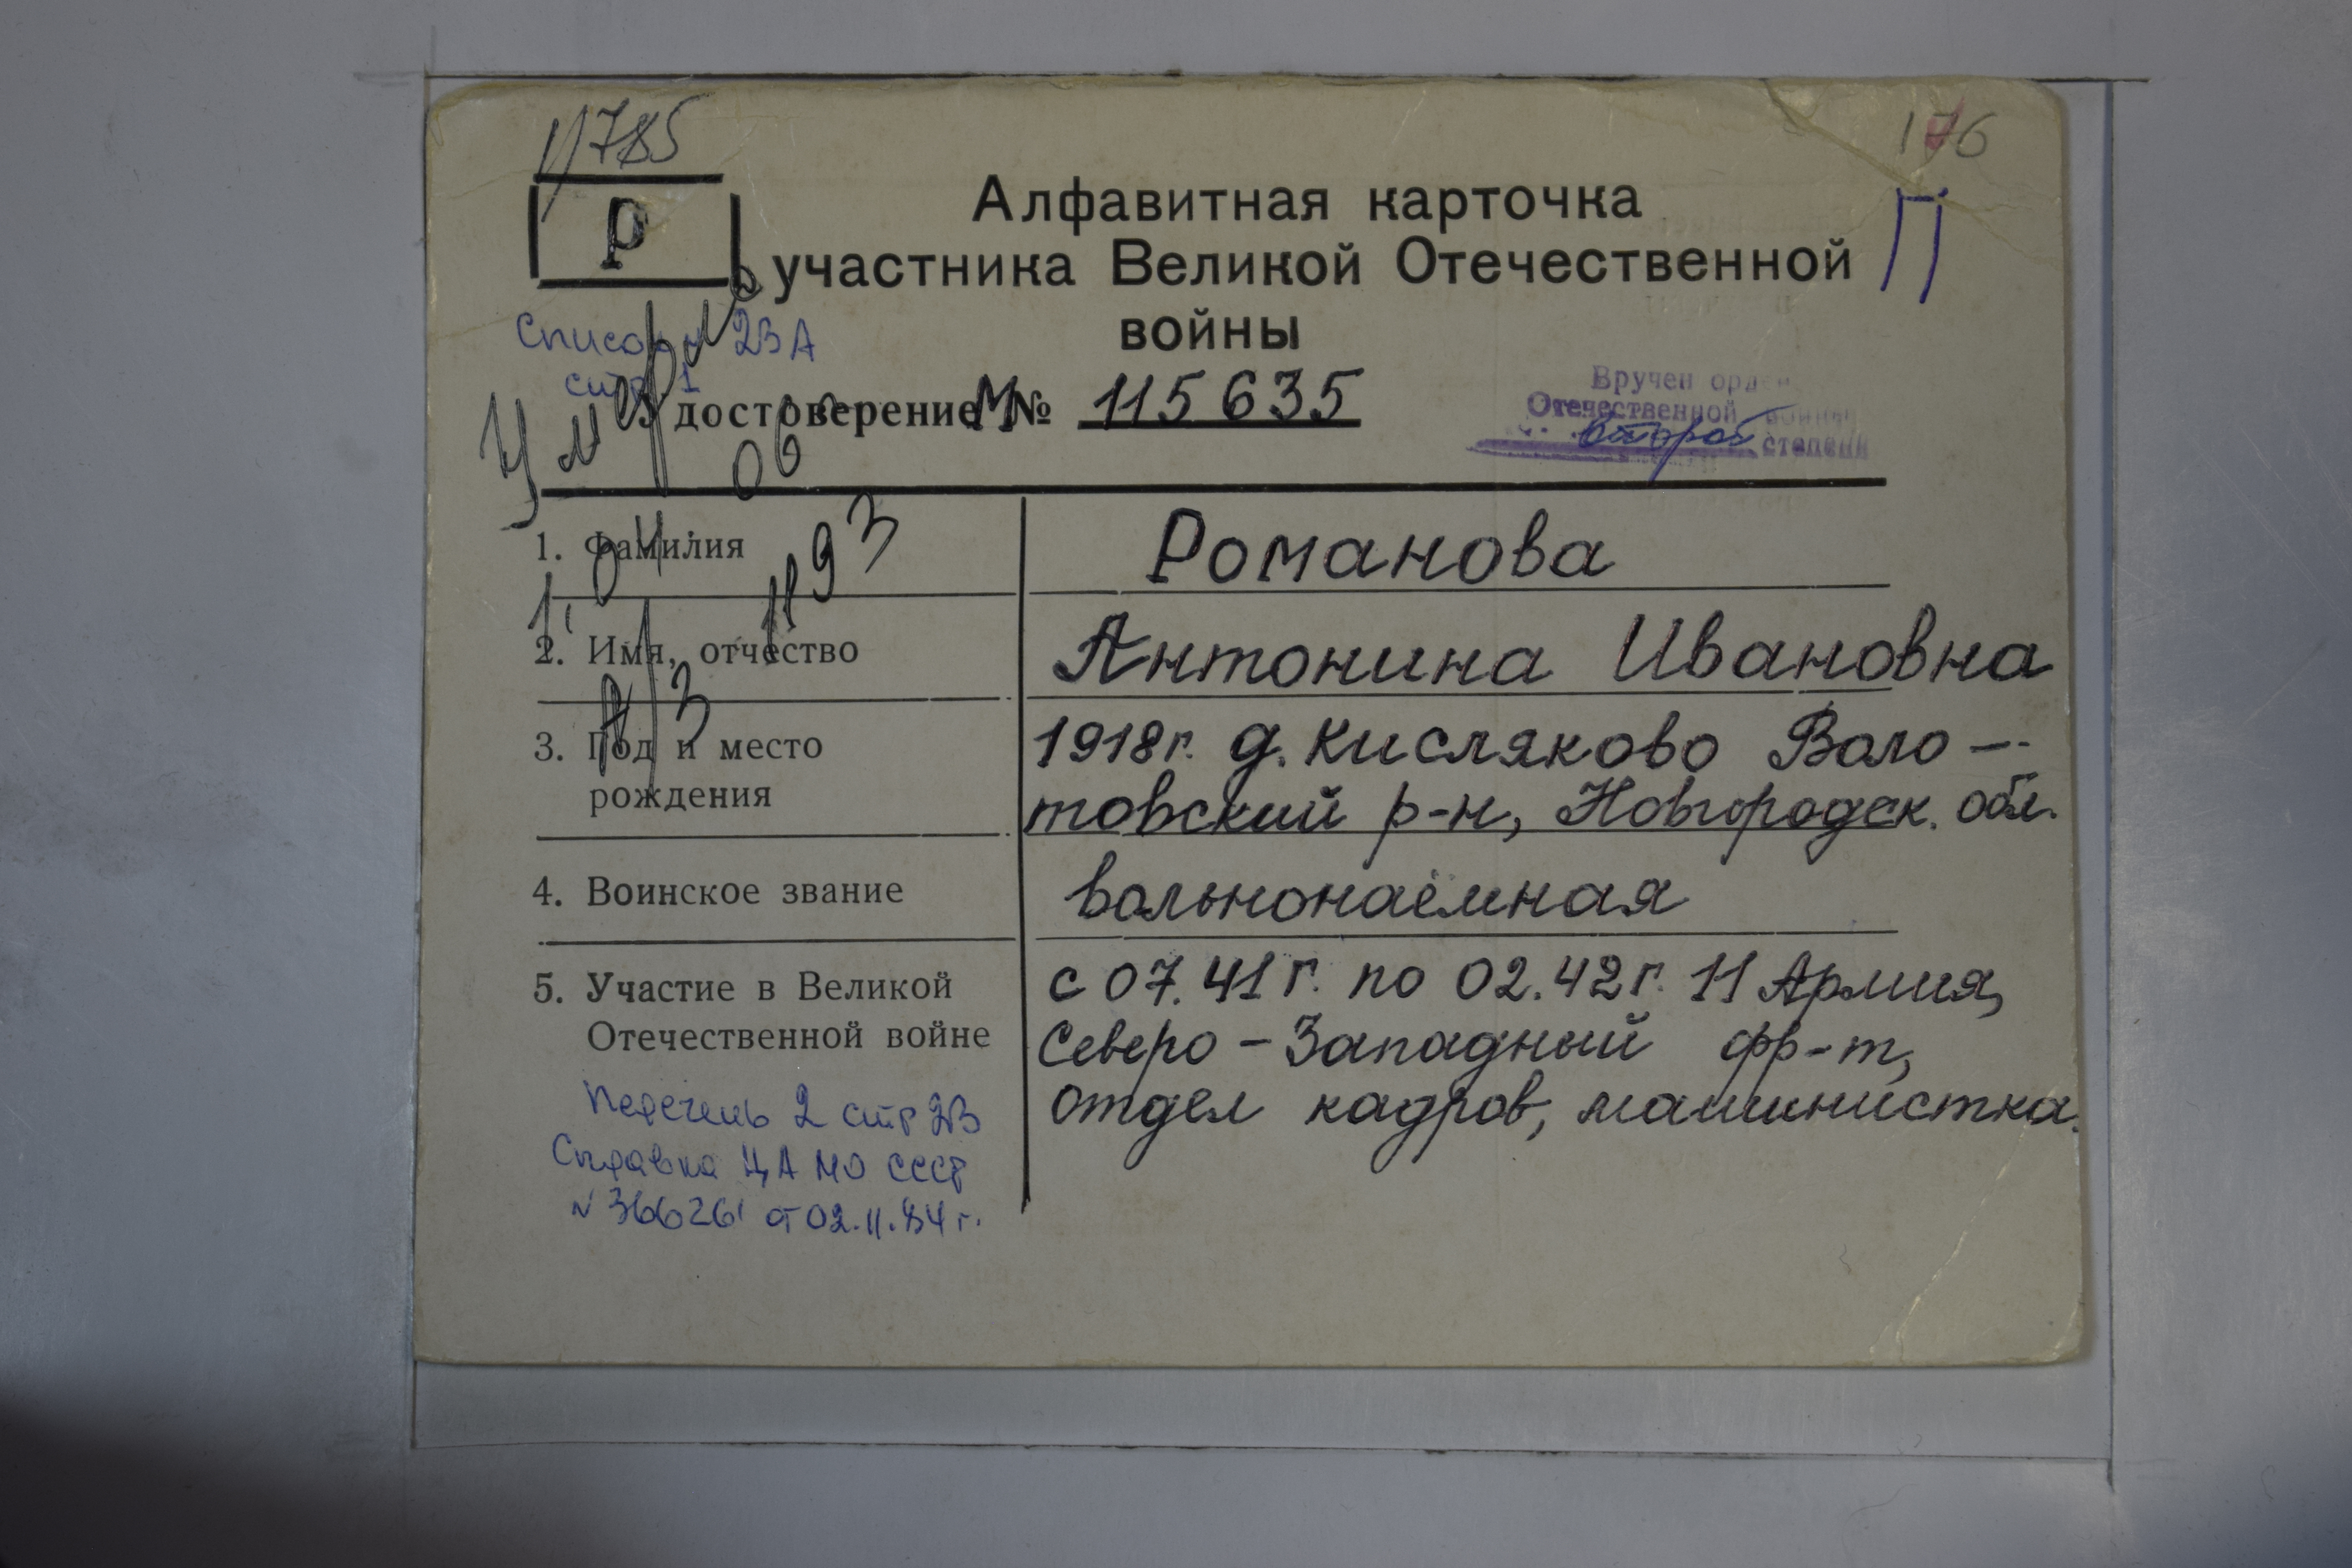 11785
176
Р
П
Алфавитная карточка
участника Великой Отечественной
войны
Список 23А
стр 1
Удостоверение М№ 115635
Вручен орден
Отечественной войны
второй степени
Умерла
1. Фамилия Романова
2. Имя, отчество Антонина Ивановна
3. Год и место рождения 1918г. д. Кисляково Воло-
товский р-н, Новгородск. обл.
4. Воинское звание вольнонаёмная
5. Участие в Великой Отечественной войне с 07.41г. по 02.42г. 11 Армия,
Северо-Западный фр-т,
отдел кадров, машинистка.
Перечень 2 стр 23
Справка ЦА МО СССР
N 366261 от 02.11.84г.